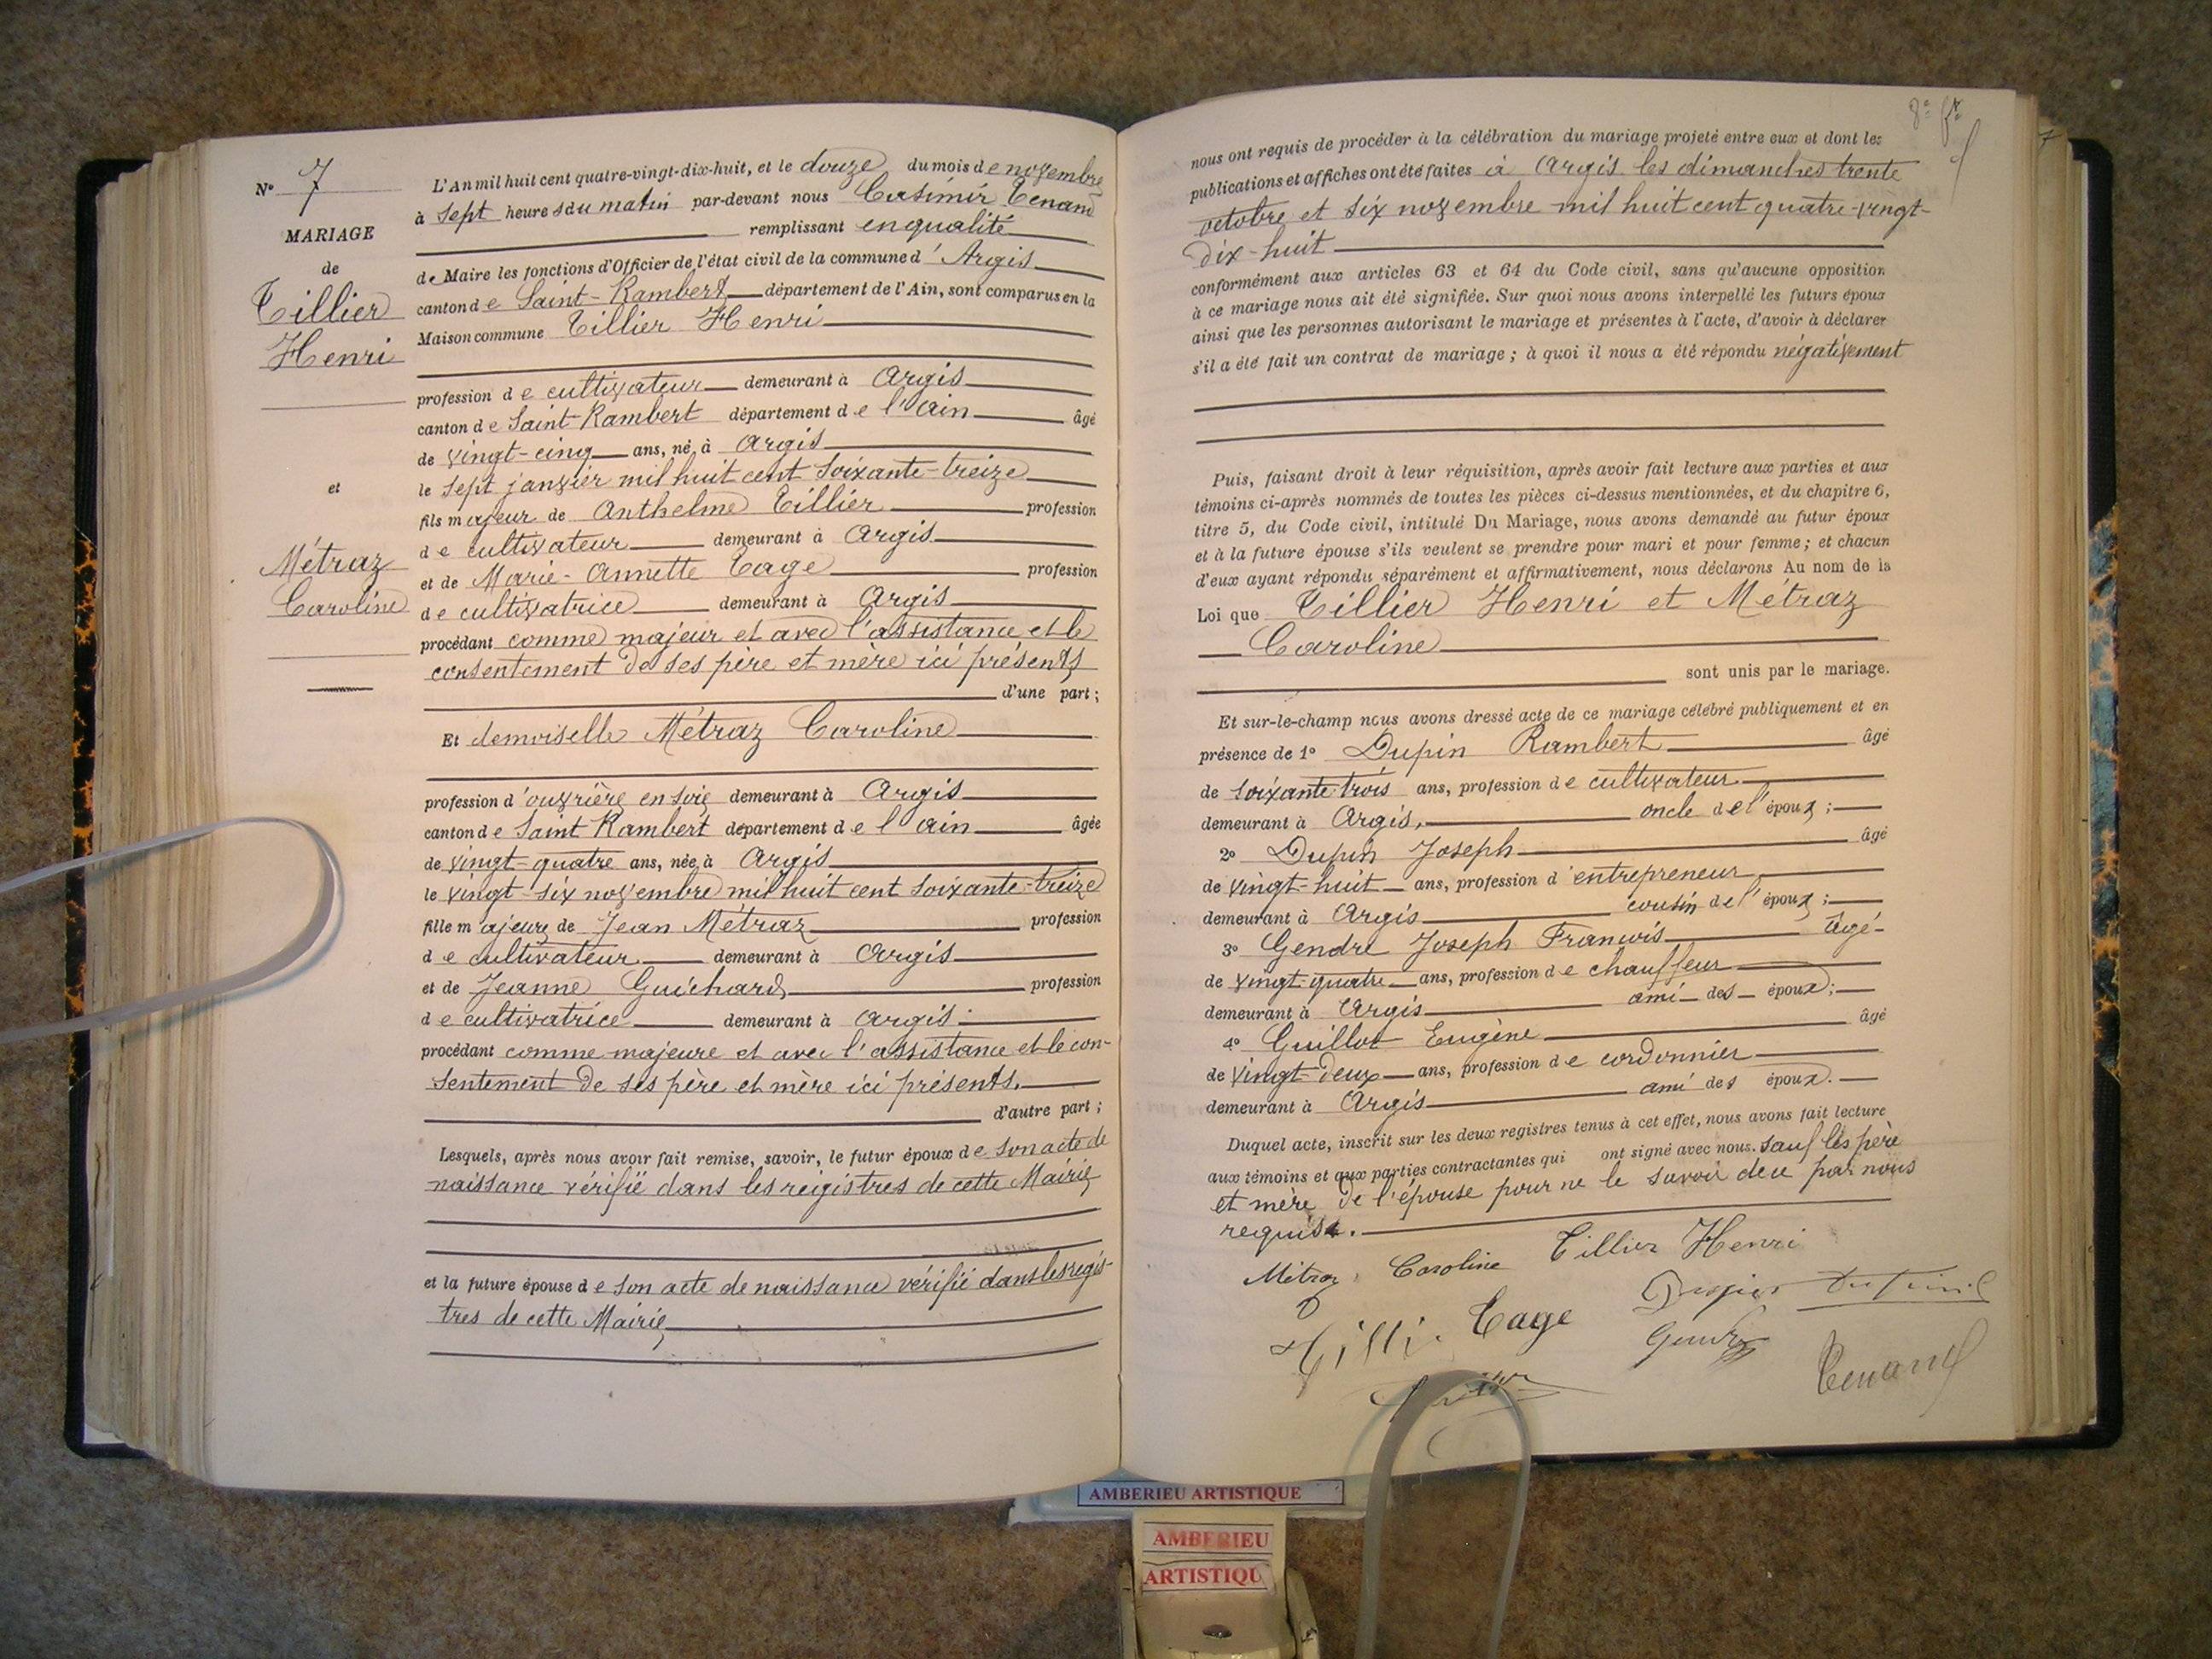 N° 7
MARIAGE
de
Tillier
Henri
et
Métraz
Caroline
L'An mil huit cent quatre-vingt-dix-huit, et le douze du mois de novembre
à sept heures du matin par-devant nous Casimir Tenand
remplissant en qualité
de Maire les fonctions d'Officier de l'état civil de la commune d'Argis
canton de Saint-Rambert département de l'Ain, sont comparus en la
Maison commune Tillier Henri
profession de cultivateur demeurant à Argis
canton de Saint-Rambert département de l'Ain âgé
de vingt-cinq ans, né à Argis
le sept janvier mil huit cent soixante-treize
fils majeur de Anthelme Tillier profession
de cultivateur demeurant à Argis
et de Marie-Annette Tage profession
de cultivatrice demeurant à Argis
procédant comme majeur et avec l'assistance et le
consentement de ses père et mère ici présents
d'une part;
Et demoiselle Métraz Caroline
profession d'ouvrière en soie demeurant à Argis
canton de Saint Rambert département de l'Ain âgée
de vingt-quatre ans, née à Argis
le vingt-six novembre mil huit cent soixante-treize
fille majeure de Jean Métraz profession
de cultivateur demeurant à Argis
et de Jeanne Guichard profession
de cultivatrice demeurant à Argis
procédant comme majeure et avec l'assistance et le con-
sentement de ses père et mère ici présents.
d'autre part;
Lesquels, après nous avoir fait remise, savoir, le futur époux de son acte de
naissance vérifié dans les régistres de cette Mairie
et la future épouse de son acte de naissance vérifié dans les régis-
tres de cette Mairie
8e ft
nous ont requis de procéder à la célébration du mariage projeté entre eux et dont les
publications et affiches ont été faites à Argis les dimanches trente
octobre et six novembre mil huit cent quatre-vingt-
dix-huit
conformément aux articles 63 et 64 du Code civil, sans qu'aucune opposition
à ce mariage nous ait été signifiée. Sur quoi nous avons interpellé les futurs époux
ainsi que les personnes autorisant le mariage et présentes à l'acte, d'avoir à déclarer
s'il a été fait un contrat de mariage; à quoi il nous a été répondu négativement
Puis, faisant droit à leur réquisition, après avoir fait lecture aux parties et aux
témoins ci-après nommés de toutes les pièces ci-dessus mentionnées, et du chapitre 6,
titre 5, du Code civil, intitulé Du Mariage, nous avons demandé au futur époux
et à la future épouse s'ils veulent se prendre pour mari et pour femme; et chacun
d'eux ayant répondu séparément et affirmativement, nous déclarons Au nom de la
Loi que Tillier Henri et Métraz
Caroline
sont unis par le mariage.
Et sur-le-champ nous avons dressé acte de ce mariage célébré publiquement et en
présence de 1° Dupin Rambert âgé
de soixante trois ans, profession de cultivateur
demeurant à Argis, oncle de l'époux;
2° Dupin Joseph âgé
de vingt-huit ans, profession d'entrepreneur
demeurant à Argis cousin de l'époux;
3° Gendre Joseph François âgé
de vingt-quatre ans, profession de chauffeur
demeurant à Argis ami des époux;
4° Guillot Eugène âgé
de vingt-deux ans, profession de cordonnier
demeurant à Argis ami des époux.
Duquel acte, inscrit sur les deux registres tenus à cet effet, nous avons fait lecture
aux témoins et aux parties contractantes qui ont signé avec nous. sauf les père
et mère de l'épouse pour ne le savoir de ce par nous
requis.
Métraz Caroline Tillier Henri
Tilli Tage
Tenand
AMBERIEU ARTISTIQUE
AMBERIEU
ARTISTIQU